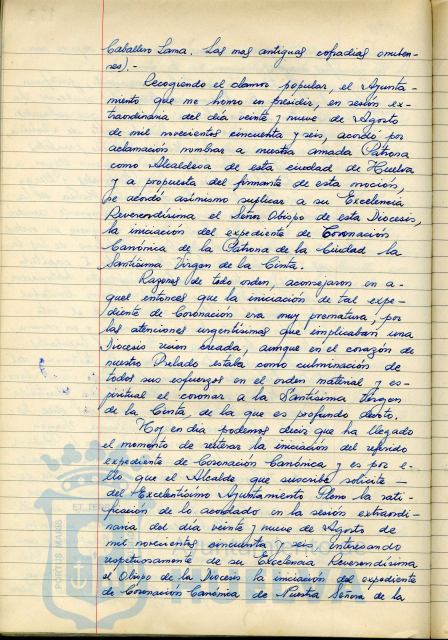 Caballero Lama. Las mas antiguas cofradias onuben-
ses).-
Recogiendo el clamor popular, el Ayunta-
miento que me honro en presidir, en sesión ex-
traordinaria del día veinte y nueve de Agosto
de mil novecientos cincuenta y seis, acordó por
aclamación nombrar a nuestra amada Patrona
como Alcaldesa de esta ciudad de Huelva
y a propuesta del firmante de esta moción,
se acordó asimismo suplicar a su Excelencia
Reverendísima el Señor Obispo de esta Diócesis,
la iniciación del expediente de Coronación
Canónica de la Patrona de la Ciudad la
Santísima Virgen de la Cinta.
Razones de todo orden, aconsejaron en a-
quel entonces que la iniciación de tal expe-
diente de Coronación era muy prematura, por
las atenciones urgentísimas que implicaban una
Diócesis recien creada, aunque en el corazón de
nuestro Prelado estaba como culminación de
todos sus esfuerzos en el orden material y es-
piritual el coronar a la Santísima Virgen
de la Cinta, de la que es profundo devoto.
Hoy en día podemos decir que ha llegado
el momento de reiterar la iniciación del referido
expediente de Coronación Canónica y es por e-
llo que el Alcalde que suscribe solicite
del Excelentísimo Ayuntamiento Pleno la rati-
ficación de lo acordado en la sesión extraordi-
naria del día veinte y nueve de Agosto de
mil novecientos cincuenta y seis interesando
respetuosamente de su Excelencia Reverendísima
el Obispo de la Diócesis la iniciación del expediente
de Coronación Canónica de Nuestra Señora de la
PORTUS MARIS ET TE